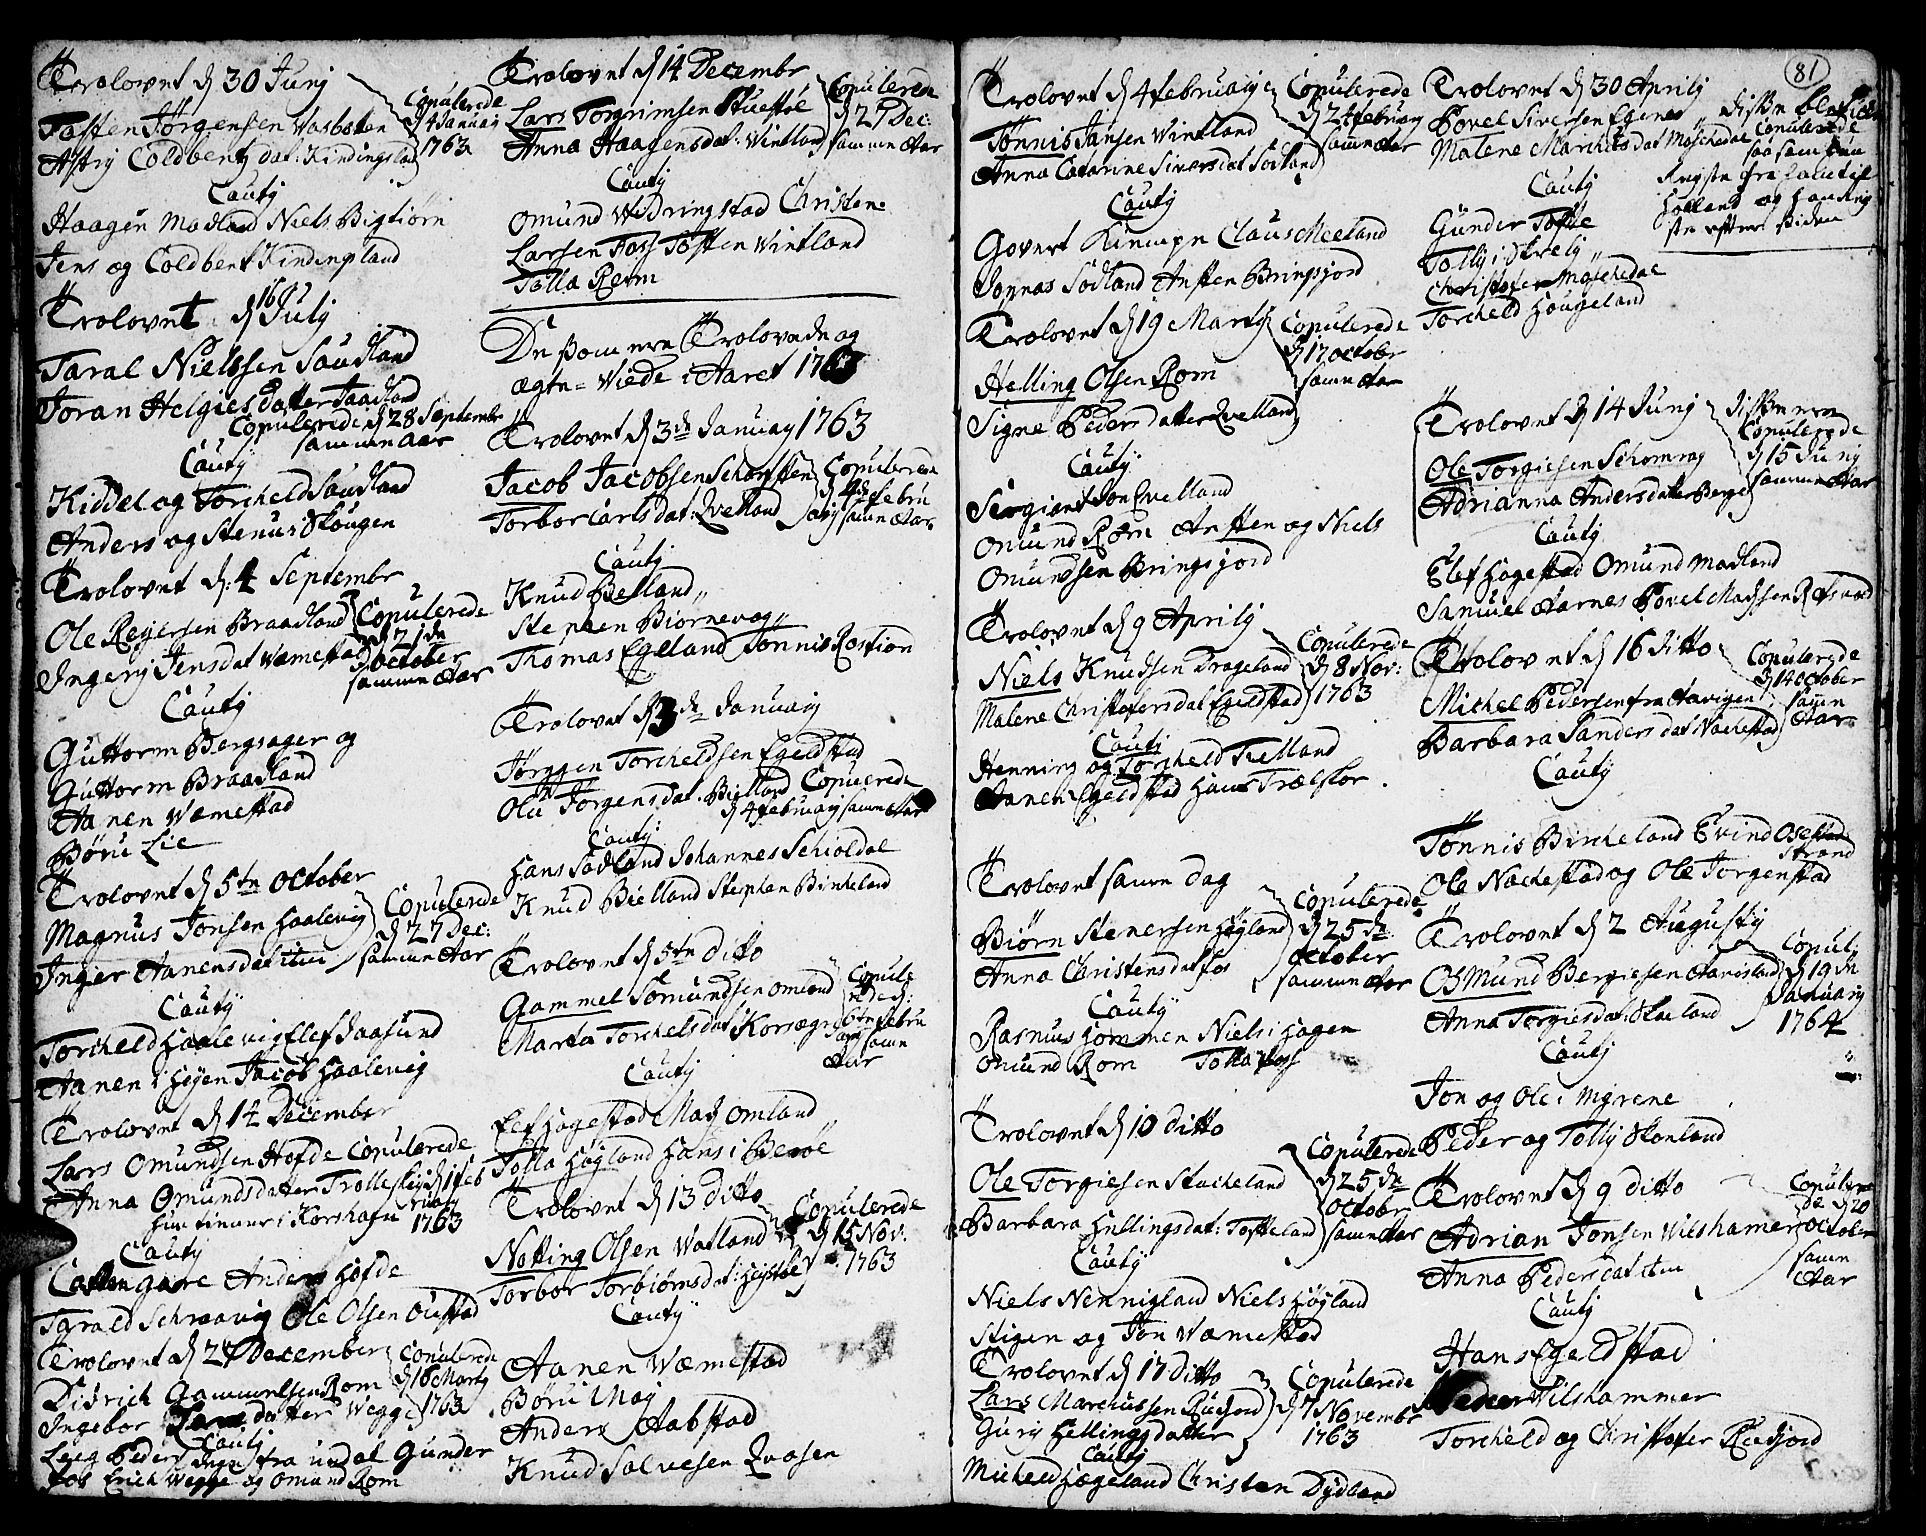 Trolovet d 30 Junij
Tosten Jørgensen Vasbotten
Astrij Coldbentz dat: Kindingsland
Copulerede
d 4 Januarij
1763
Cautij
Haagen Madland Niels Bigtiörn
Jens og Coldbent Kindingsland
Trolovet d 16 Julij
Taral Nielssen Saudland
Joran Helgies Datter Saadland
Copulerede d 28 Septembr
samme aar
Cautij
Kiddel og Torcheld Saudland
Anders og Stenus Skougen
Trolovet d: 4 Septembr
Ole Reyersen Braadland
Ingerij Jensdat Væmestad
Copulerede
d 21 de
October
samme Aar
Cautij
Guttorm Bergsager og
Guttorm Braadland
Aanen Væmestad
Böru Lie
Trolovet d 5te October
Magnus Jonsen Haalevig
Inger Aanensdat
Copulerede
d 27 Dec:
samme Aar
Cautij
Torcheld Haalevig Elef Jaasund
Aanen i Højen Jacob Haalevig
Trolovet d 14 December
Lars Omundsen Hofde Copulerede
Anna Omundsdatter Trolleskej d 1 feb
ruarij
hun tiener i Korshafn 1763
Cautij
Anders Hofde
Tarald Schraavig Ole Olsen Oustad
Trolovet d 27 December
Didrich Gammelsen Rom
Ingebor datter Wegge
Copulerede
d 16 Martij
1763
Cautij
fra undal Gunder
Fos Erich Wegge og Omund Rom
Trolovet d 14 Decembr
Lars Torgrimsen Stuestöl
Anna Haagensdat: Vintland
Copulerede
d 27 Dec:
samme Aar
Cautij
Omund Widringstad Christen
Larsen Foss Tosten Vintland
Tolla Rerm
De som ere Trolovede og
ægte-Viede i Aaret 1763
Trolovet d 3de Januarij 1763
Jacob Jacobsen Schorsten
Torbor Carlsdat: Qvelland
Copulerede
d 4de febru
arij samme Aar
Cautij
Knud Belland
Stephen Biornevog
Thomas Egeland Tönnis Rostion
Trolovet d 3de Januarij
Jörgen Torcheldsen Egeldstad
Olu Jorgensdat: Bielland
Copulerede
d 4 februarij samme Aar
Cautij
Hans Sødland Johannes Schioldal
Knud Bielland Stephen Birkeland
Trolovet d 5te ditto
Gammel Somundsen Omland
Marta Torchelsdat Korsægre
Copule
rede d:
6te febru
arij samme
Aar
Cautij
Elef Hogestad Madz Omland
Tolla Høgland Hans i Beröe
Trolovet d 13 Ditto
Notting Olsen Watland
Torbor Torbiörnsdat: Heistöl
Copulerede
d 15 Nov:
1763
Cautij
Aanen Wæmestad
Böru Moij
Anders Aabstad
Knud Salvesen Rvasen
81
Trolovet d 4 februarij
Tönnis Jansen Vintland
Anna Catarine Siversdat Södland
Copulerede
d 24 februarij
samme Aar
Cautij
Govert Kinnepe Claus Meeland
Jonnas Södland Ansten Bringsjord
Trolovet d 19 Martij
Helling Olsen Rom
Signe Peders datter Qvelland
Copulerede
d 17 October
samme Aar
Cautij
Sirgiant von Qvelland
Omund Rom Ansten og Niels
Omundsen Bringsjord
Trolovet d 9 Aprilij
Niels Knudsen Drageland
Malene Christofersdat Egeldstad
Copulerede
d 8 Nov:
1763
Cautij
Henning og Torcheld Tielland
Aanen Egeldstad Hans Trælslor
Trolovet samme dag
Biörn Stenersen Høgland
Anna Christensdat Fos
Copulerede
d 25 de
October
samme Aar
Cautij
Rasmus Hommen Niels i Hagen
Omund Rom Tolla Fos
Trolovet d 10 Ditto
Ole Torgiesen Stacheland
Barbara Hellingsdat: Tofteland
Copulerede
d 25 de
October
samme Aar
Cautij
Niels Nennigland Niels Högland
Stigen og Jon Wæmestad
Trolovet d 17 Ditto
Lars Marchussen Rudjord
Gurij Hellingsdatter
Copulerede
d 7 Novembr
1763
Cautij
Micheld Hægeland Christen Dydland
Trolovet d 30 Aprilij
Povel Siversen Egenes
Malene Marchusdat Moschedal
Cautij
Gunder Tofte
Tollij i Skrelij
Christofer Moschedal
Torcheld Hougeland
Disse blef
Copulerede
Holland og
efter
Trolovet d 14 Junij
Ole Torgiesen Schomrag
Adrianna Andersdatter Berge
Disse ere
Copulerede
d 15 Junij
samme Aar
Cautij
Elef Hagestad Omund Madland
Samuel Aarnes Povel Madsen Refsvold
Trolovet d 16 Ditto
Michel Pedersen fra Stavigen
Barbara Sanders dat Nackestad
Copulerede
d 14 October
samme
Aar
Cautij
Tönnis Birkeland Evind Osestad
Strand
Ole Nackestad og Ole Jorgenstad
Trolovet d 2 Augustij
Osmund Bergiesen Aamdsland
Anna Torgiesdat: Skoeland
Copul:
d 19 de
Januarij
1764
Cautij
Jon og Ole i Mÿrene
Peder og Tollij Skonland
Trolovet d 9 Ditto
Adrian Jonsen Wilshamer
Anna Pedersdat
Copulere
de d 20
October
samme
Aar
Cautij
Hans Egeldstad
Peder Wilshammer
Torcheld og Christoffer Rudjord